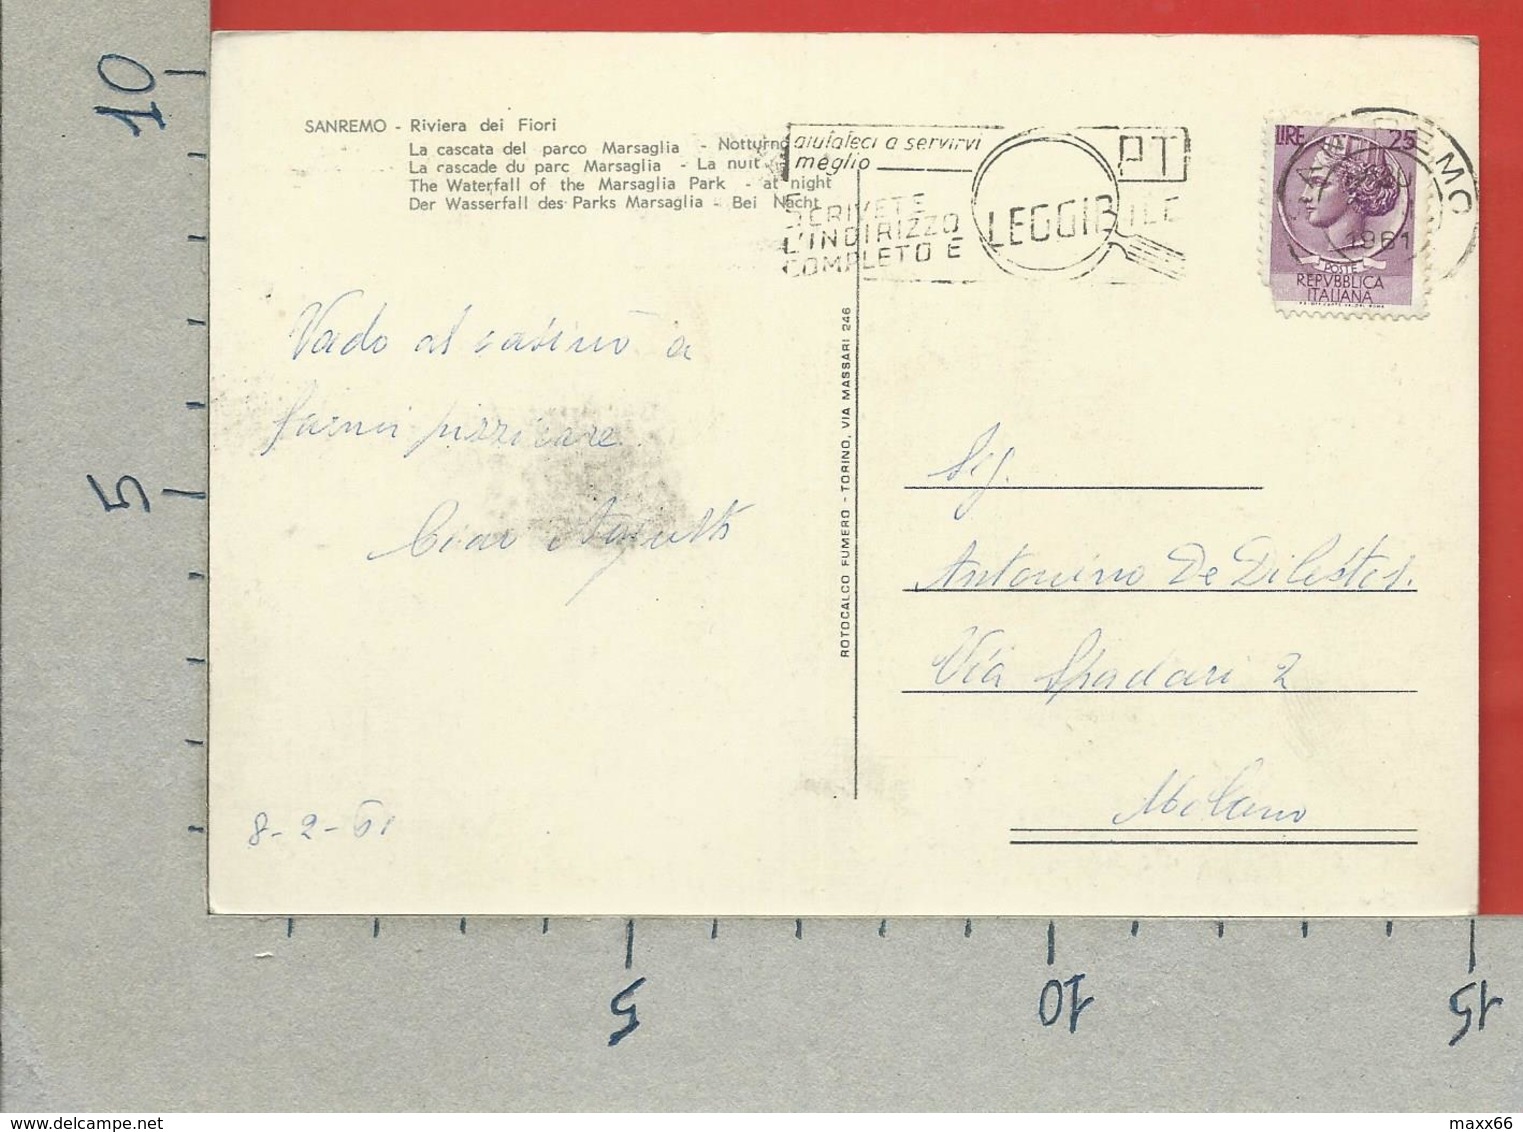 SANREMO - Riviera dei Fiori
La cascata del parco Marsaglia - Notturno
La cascade du parc Marsaglia - La nuit
The Waterfall of the Marsaglia Park - at night
Der Wasserfall des Parks Marsaglia - Bei Nacht
aiutateci a servirvi
meglio
PT
SCRIVETE
L'INDIRIZZO
COMPLETO E
LEGGIBILE
SANREMO
1961
LIRE 25
POSTE
REPVBBLICA
ITALIANA
Vado al casinò a
farmi pizzicare.
Ciao
8-2-61
ROTOCALCO FUMERO - TORINO, VIA MASSARI 246
Sig.
Antonino De
Via Spadari 2
Milano
10
5
5
10
15
maxx66